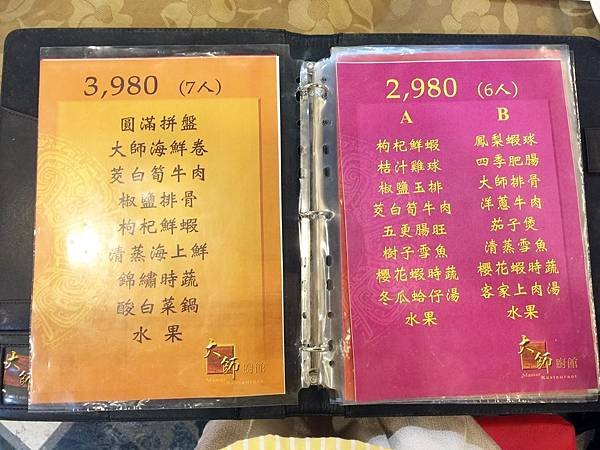 3,980 (7人)
圓滿拼盤
大師海鮮卷
茭白筍牛肉
椒鹽排骨
枸杞鮮蝦
清蒸海上鮮
錦繡時蔬
酸白菜鍋
水果
大師廚館
Master Restaurant
2,980 (6人)
A
枸杞鮮蝦
桔汁雞球
椒鹽玉排
茭白筍牛肉
五更腸旺
樹子雪魚
櫻花蝦時蔬
冬瓜蛤仔湯
水果
B
鳳梨蝦球
四季肥腸
大師排骨
洋蔥牛肉
茄子煲
清蒸雪魚
櫻花蝦時蔬
客家上肉湯
水果
大師廚館
Master Restaurant
大師